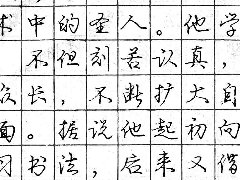 术中的圣人。他学
不但刻苦认真,
众长,不断扩大自
面。据说他起初向
习书法,后来又借